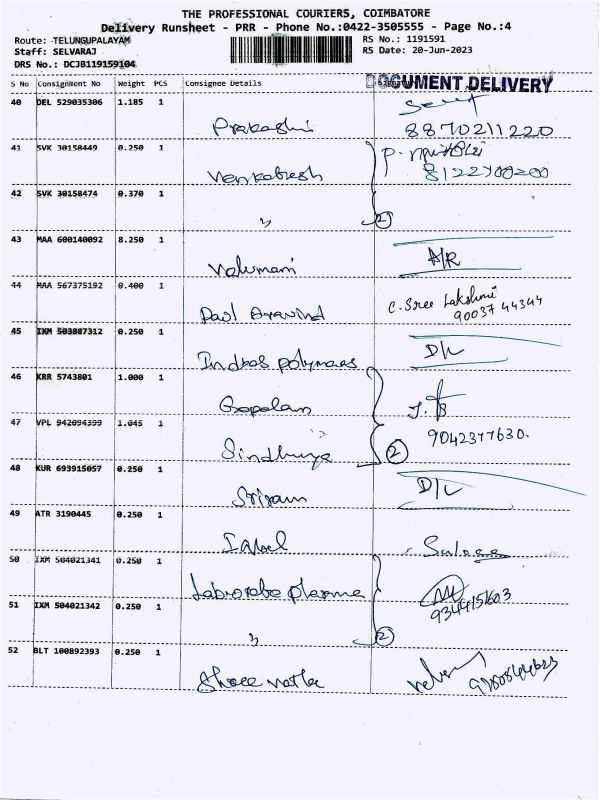 THE PROFESSIONAL COURIERS, COIMBATORE
Delivery Runsheet - PRR - Phone No.:0422-3505555 - Page No.:4
Route: TELUNGUPALAYAM RS No.: 1191591
Staff: SELVARAJ RS Date: 20-Jun-2023
DRS No.: DCJB119159104
S No Consignment No Weight PCS Consignee Details Signature DOCUMENT DELIVERY
40 DEL 529035306 1.185 1
Prakash 8870211220
41 SVK 30158449 0.250 1
Venkatesh 8122700200
42 SVK 30158474 0.370 1
" 2
43 MAA 600140092 8.250 1
Valumani A/R
44 MAA 567375192 0.400 1
Paul Aravind C. Sree Lakshmi
90037 44344
45 IXM 503887312 0.250 1
Indkas polymaas D/L
46 KRR 5743801 1.000 1
Gopalan
47 VPL 942094399 1.045 1
Sindhuya 2 9042377630.
48 KUR 693915057 0.250 1
Sriram D/L
49 ATR 3190445 0.250 1
Iqbal
50 IXM 504021341 0.250 1
Laborate pharma
51 IXM 504021342 0.250 1
" 2
52 BLT 100892393 0.250 1
Shree